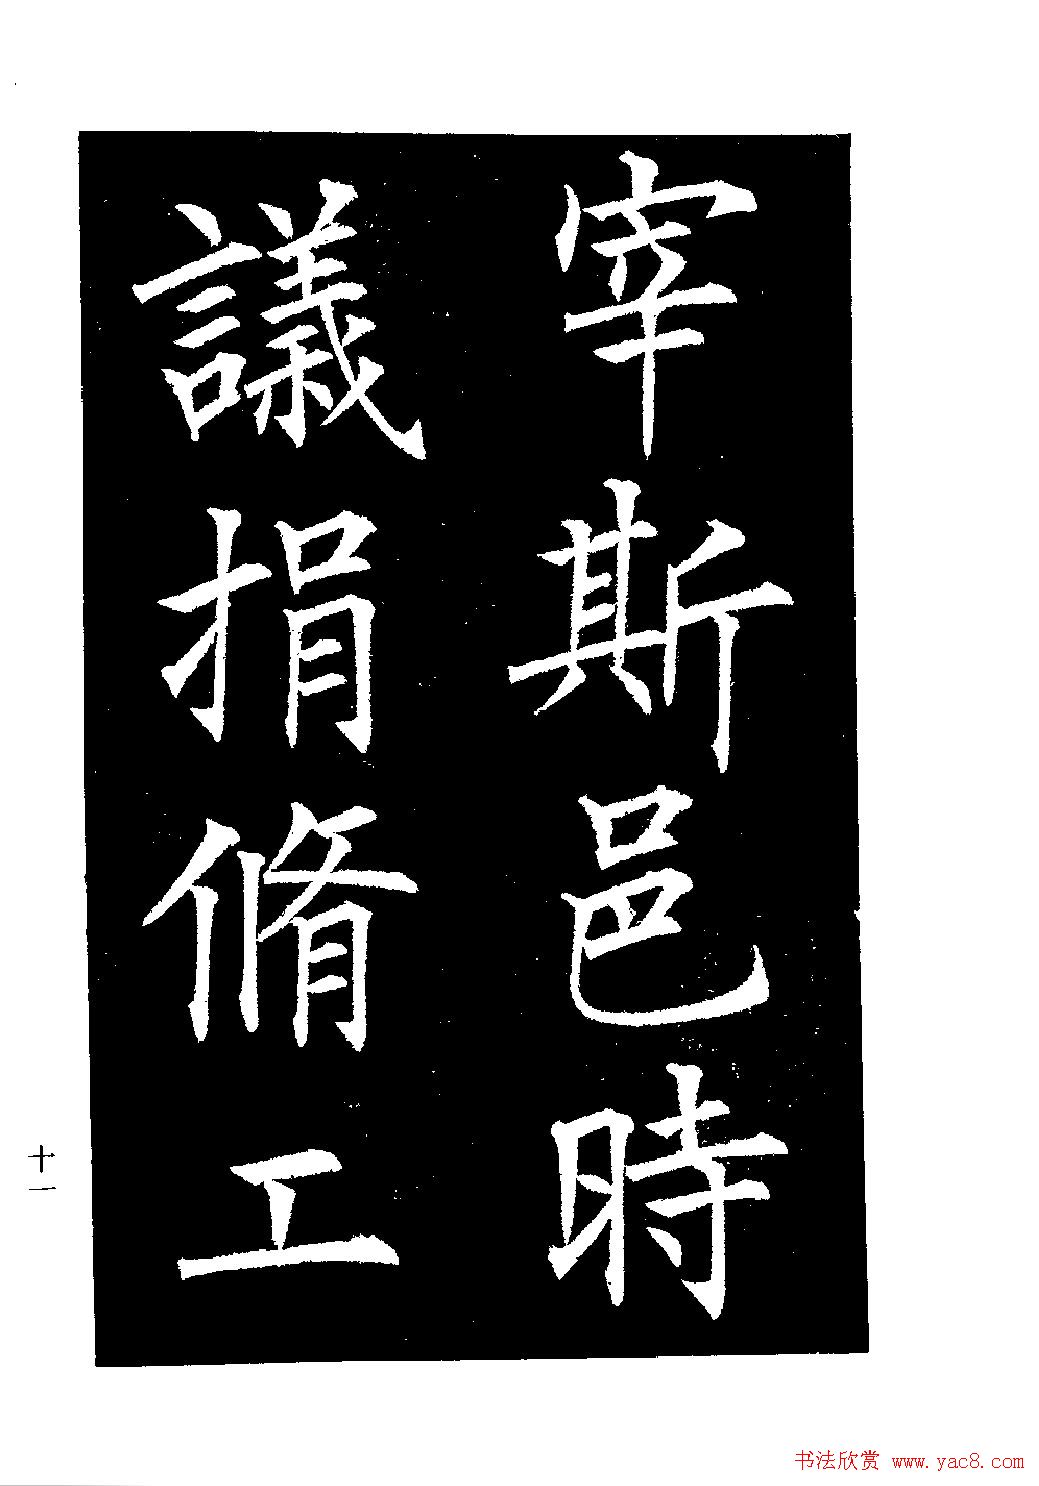 宰斯邑時
議捐脩工
十一
书法欣赏 www.yac8.com